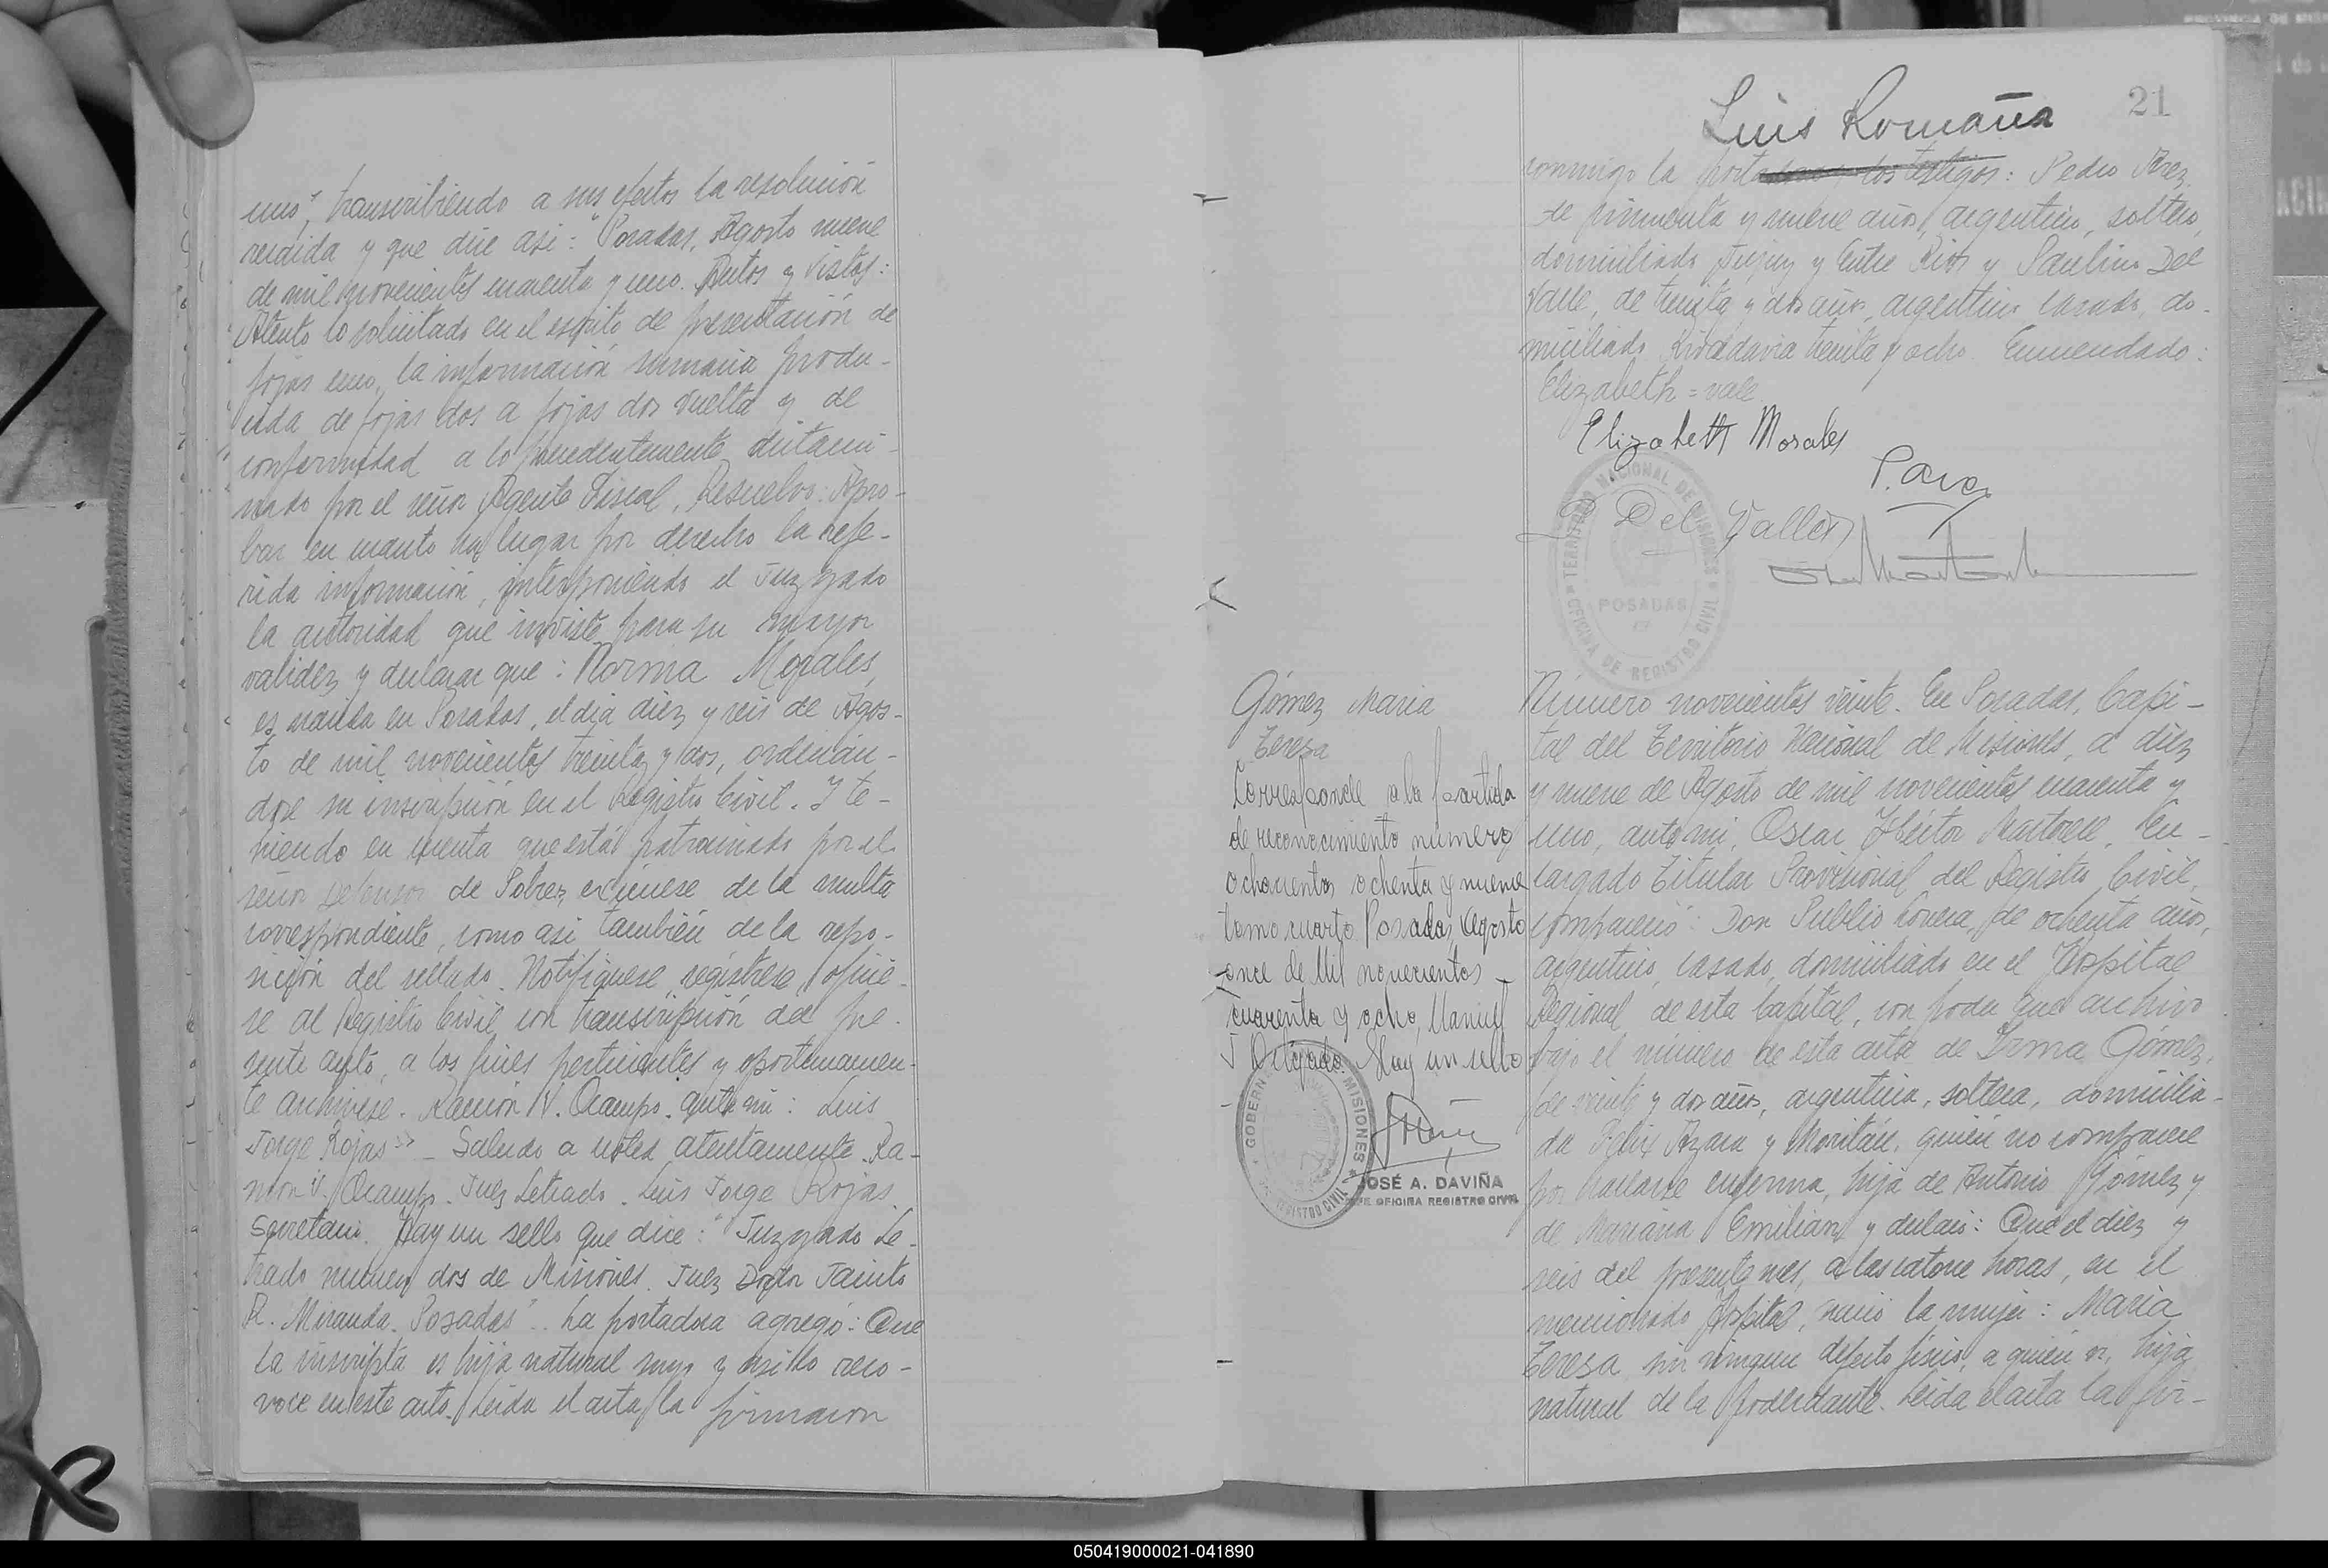 uno", transcribiendo a sus efectos la resolución
recaída y que dice asi: "Posadas, Agosto nueve
de mil novecientos cuarenta y uno. Autos y Vistos:
Atento lo solicitado en el escrito de presentación de
fojas uno, la información sumaria produ-
cida de fojas dos a fojas dos vuelta y de
conformidad a lo precedentemente dictami-
nado por el señor Agente Fiscal, Resuelvo: Apro-
bar en cuanto ha lugar por derecho la refe-
rida información, interponiendo el Juzgado
la autoridad que inviste para su mayor
validez y declarar que: Norma Morales,
es nacida en Posadas, el dia diez y seis de Agos-
to de mil novecientos treinta y dos, ordenán-
dose su inscripción en el Registro Civil. Y te-
niendo en cuenta que está patrocinado por el
señor Defensor de Pobres, exímese de la multa
correspondiente, como asi también de la repo-
sición del sellado. Notifíquese, regístrese, ofície-
se al Registro Civil con transcripción del pre-
sente auto, a los fines pertinentes y oportunamen-
te archívese. Ramón V. Ocampo. ante mi: Luis
Jorge Rojas" - Saludo a usted atentamente. Ra-
món V. Ocampo. Juez Letrado. Luis Jorge Rojas.
Secretario. Hay un sello que dice: "Juzgado Le-
trado número dos de Misiones. Juez Doctor Jacinto
R. Miranda. Posadas". La portadora agregó: Que
la inscripta es hija natural suya y asi lo reco-
noce en este acto. Leida el acta la firmaron
21
Luis Romaña
conmigo la portadora y los testigos: Pedro Perez,
de cincuenta y nueve años, argentino, soltero,
domiciliado Jujuy y Entre Rios y Paulino Del
Valle, de treinta y dos años, argentino casado, do-
miciliado Rivadavia treinta y ocho. Enmendado:
Elizabeth = vale.
Elizabeth Morales
P. Del Valle
TERRITORIO NACIONAL DE MISIONES
POSADAS
OFICINA DE REGISTRO CIVIL
Gómez Maria
Teresa
Corresponde a la partida
de reconocimiento número
ochocientos ochenta y nueve
tomo cuarto Posadas, Agosto
once de Mil novecientos
cuarenta y ocho, Manuel
J Delgado. Hay un sello
MISIONES
REGISTRO CIVIL
JOSÉ A. DAVIÑA
JEFE OFICINA REGISTRO CIVIL
Número novecientos veinte. En Posadas, Capi-
tal del Territorio Nacional de Misiones, a diez
y nueve de Agosto de mil novecientos cuarenta y
uno, ante mi, Oscar Héctor Martorell, En-
cargado Titular Provisional del Registro Civil,
compareció: Don Publio de ochenta años,
argentino, casado, domiciliado en el Hospital
Regional de esta Capital, con poder que archivo
bajo el número de esta acta de Irma Gómez,
de veinte y dos años, argentina, soltera, domicilia-
da Felix Azara y quien no comparece
por hallarse enferma, hija de Antonio Gómez y
de Mariana Emiliana y declaró: Que el diez y
seis del presente mes, a las catorce horas, en el
mencionado Hospital, nació la mujer: Maria
Teresa sin ningun defecto físico, a quien es, hija
natural de la poderdante. Leida el acta la fir-
050419000021-041890